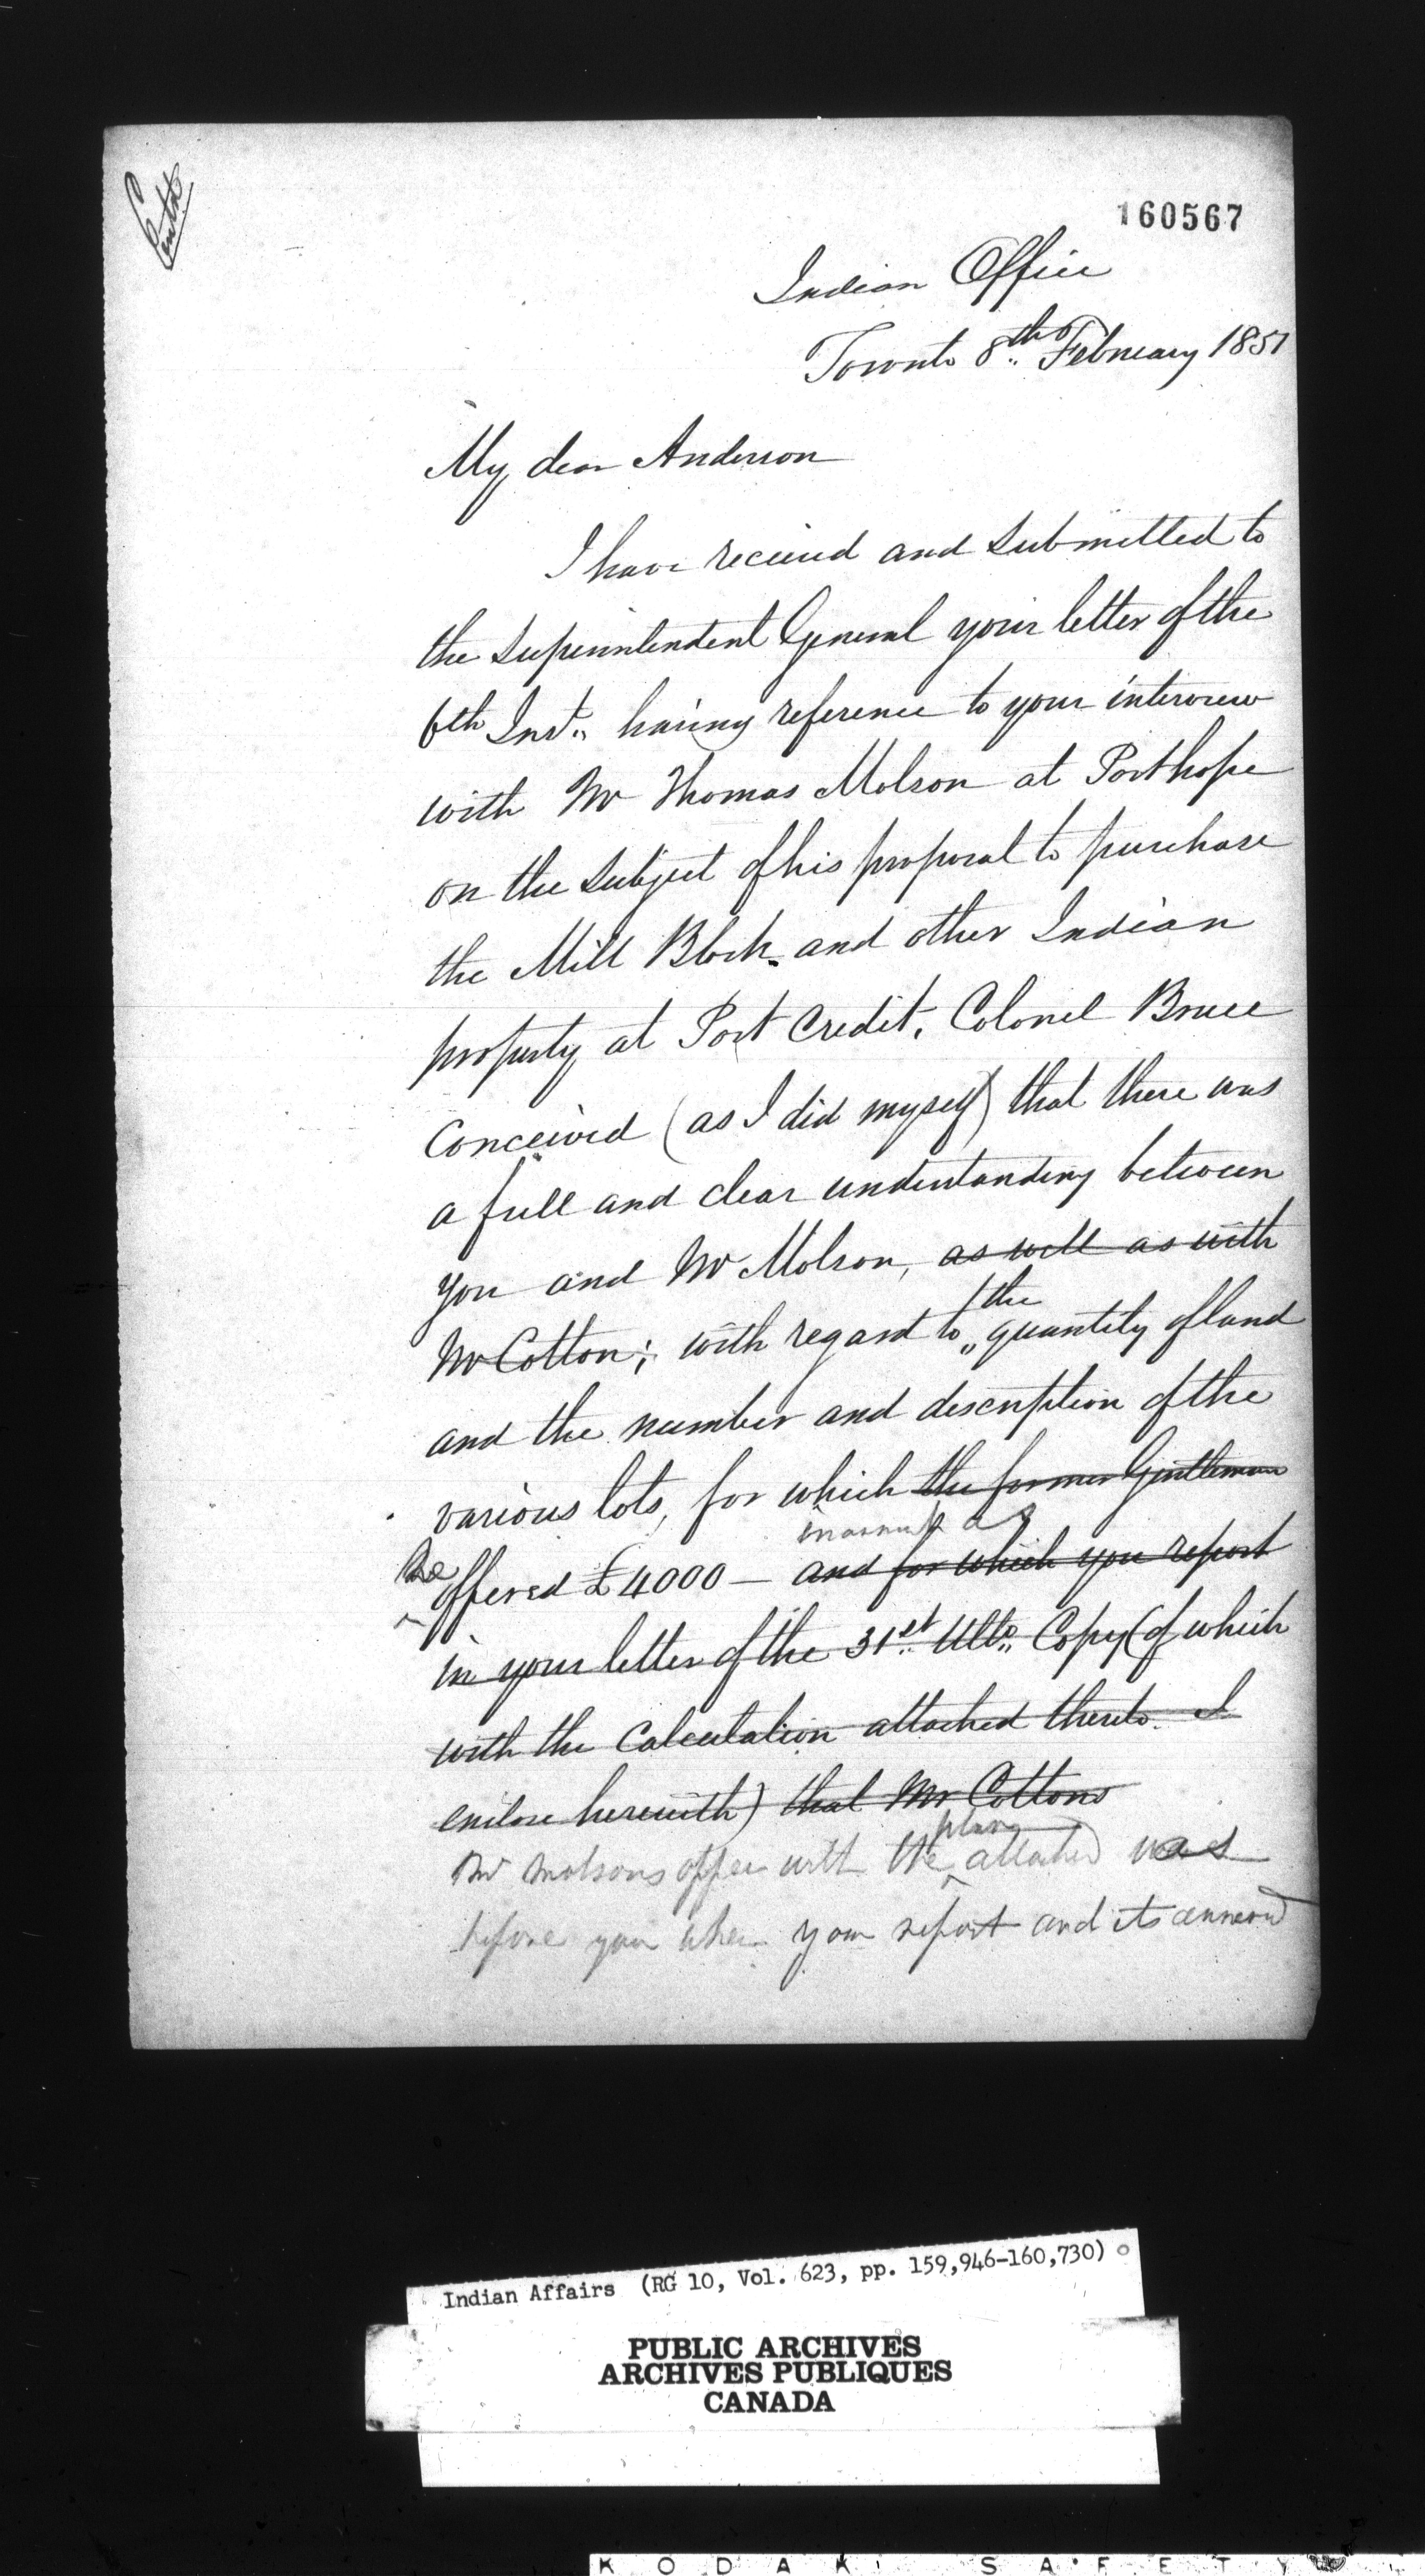 160567
Indian Office
Toronto 8th February 1851
My dear Anderson
I have received and submitted to
the Superintendent General your letter of the
6th Inst. having reference to your interview
with Mr Thomas Molson at Porthope
on the subject of his proposal to purchase
the Mill Block and other Indian
property at Port Credit. Colonel Bruce
conceived (as I did myself) that there was
a full and clear understanding between
you and Mr Molson, as well as with
Mr Cotton; with regard to the quantity of land
and the number and description of the
various lots, for which the former Gentleman
inasmuch as
he offered £4000 — and for which you report
in your letter of the 31st Ulto. Copy (of which
with the Calculation attached thereto I
enclose herewith) that Mr Cottons
Mr Molsons offer with the plan attached was
before you when your report and its annexed
Indian Affairs (RG 10, Vol. 623, pp. 159,946-160,730)
PUBLIC ARCHIVES
ARCHIVES PUBLIQUES
CANADA
KODAK SAFETY